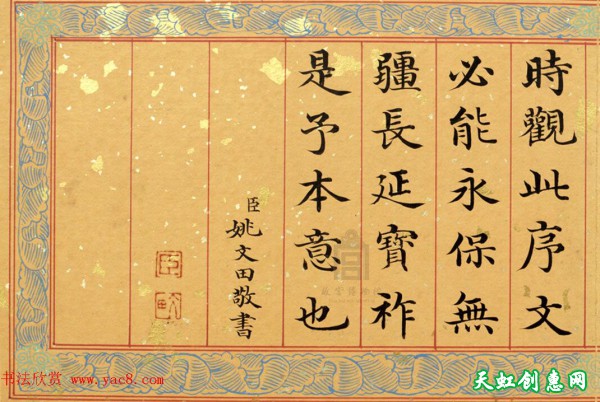 時觀此序文
必能永保無
疆長延寶祚
是予本意也
臣姚文田敬書
书法欣赏 www.yac8.com
天虹创惠网